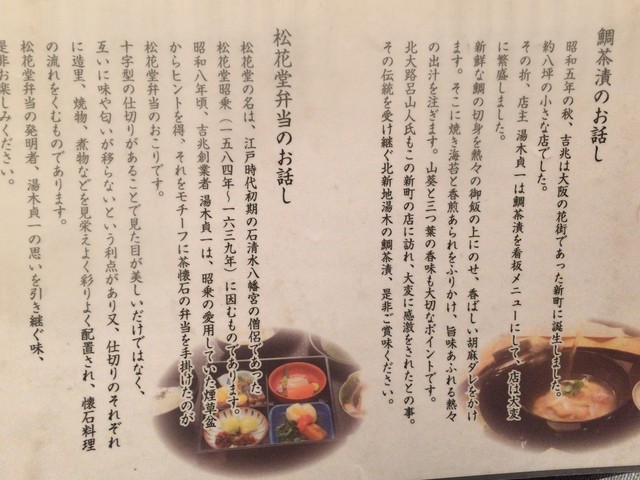 鯛茶漬のお話し
昭和五年の秋、吉兆は大阪の花街であった新町に誕生しました。
約八坪の小さな店でした。
その折、店主 湯木貞一は鯛茶漬を看板メニューにして、店は大変
に繁盛しました。
新鮮な鯛の切身を熱々の御飯の上にのせ、香ばしい胡麻ダレをかけ
ます。そこに焼き海苔と香煎あられをふりかけ、旨味あふれる熱々
の出汁を注ぎます。山葵と三つ葉の香味も大切なポイントです。
北大路呂山人氏もこの新町の店に訪れ、大変に感激をされたとの事。
その伝統を受け継ぐ北新地湯木の鯛茶漬、是非ご賞味ください。
松花堂弁当のお話し
松花堂の名は、江戸時代初期の石清水八幡宮の僧侶であった
松花堂昭乗（一五八四年〜一六三九年）に因むものであります。
昭和八年頃、吉兆創業者 湯木貞一は、昭乗の愛用していた煙草盆
からヒントを得、それをモチーフに茶懐石の弁当を手掛けたのが
松花堂弁当のおこりです。
十字型の仕切りがあることで見た目が美しいだけではなく、
互いに味や匂いが移らないという利点があり又、仕切りのそれぞれ
に造里、焼物、煮物などを見栄えよく彩りよく配置され、懐石料理
の流れをくむものであります。
松花堂弁当の発明者、湯木貞一の思いを引き継ぐ味、
是非お楽しみください。